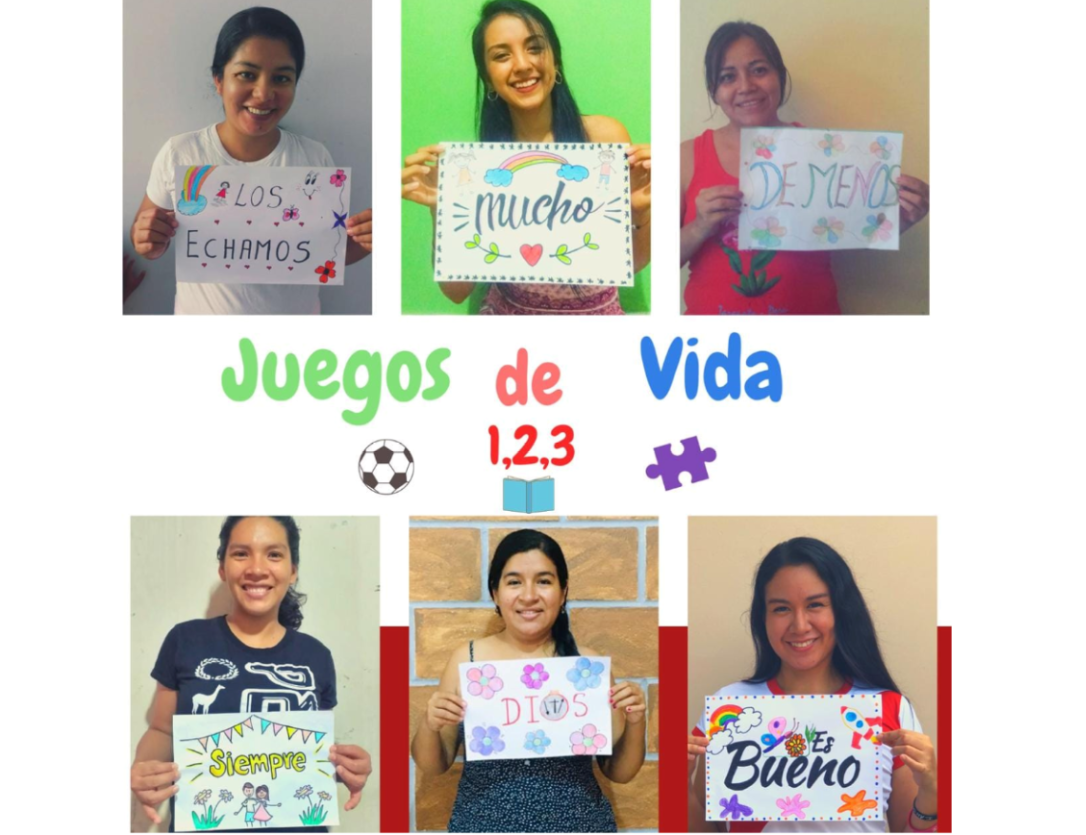 LOS
ECHAMOS
mucho
DE MENOS
Juegos de Vida
1,2,3
Siempre
DIOS
Es
Bueno